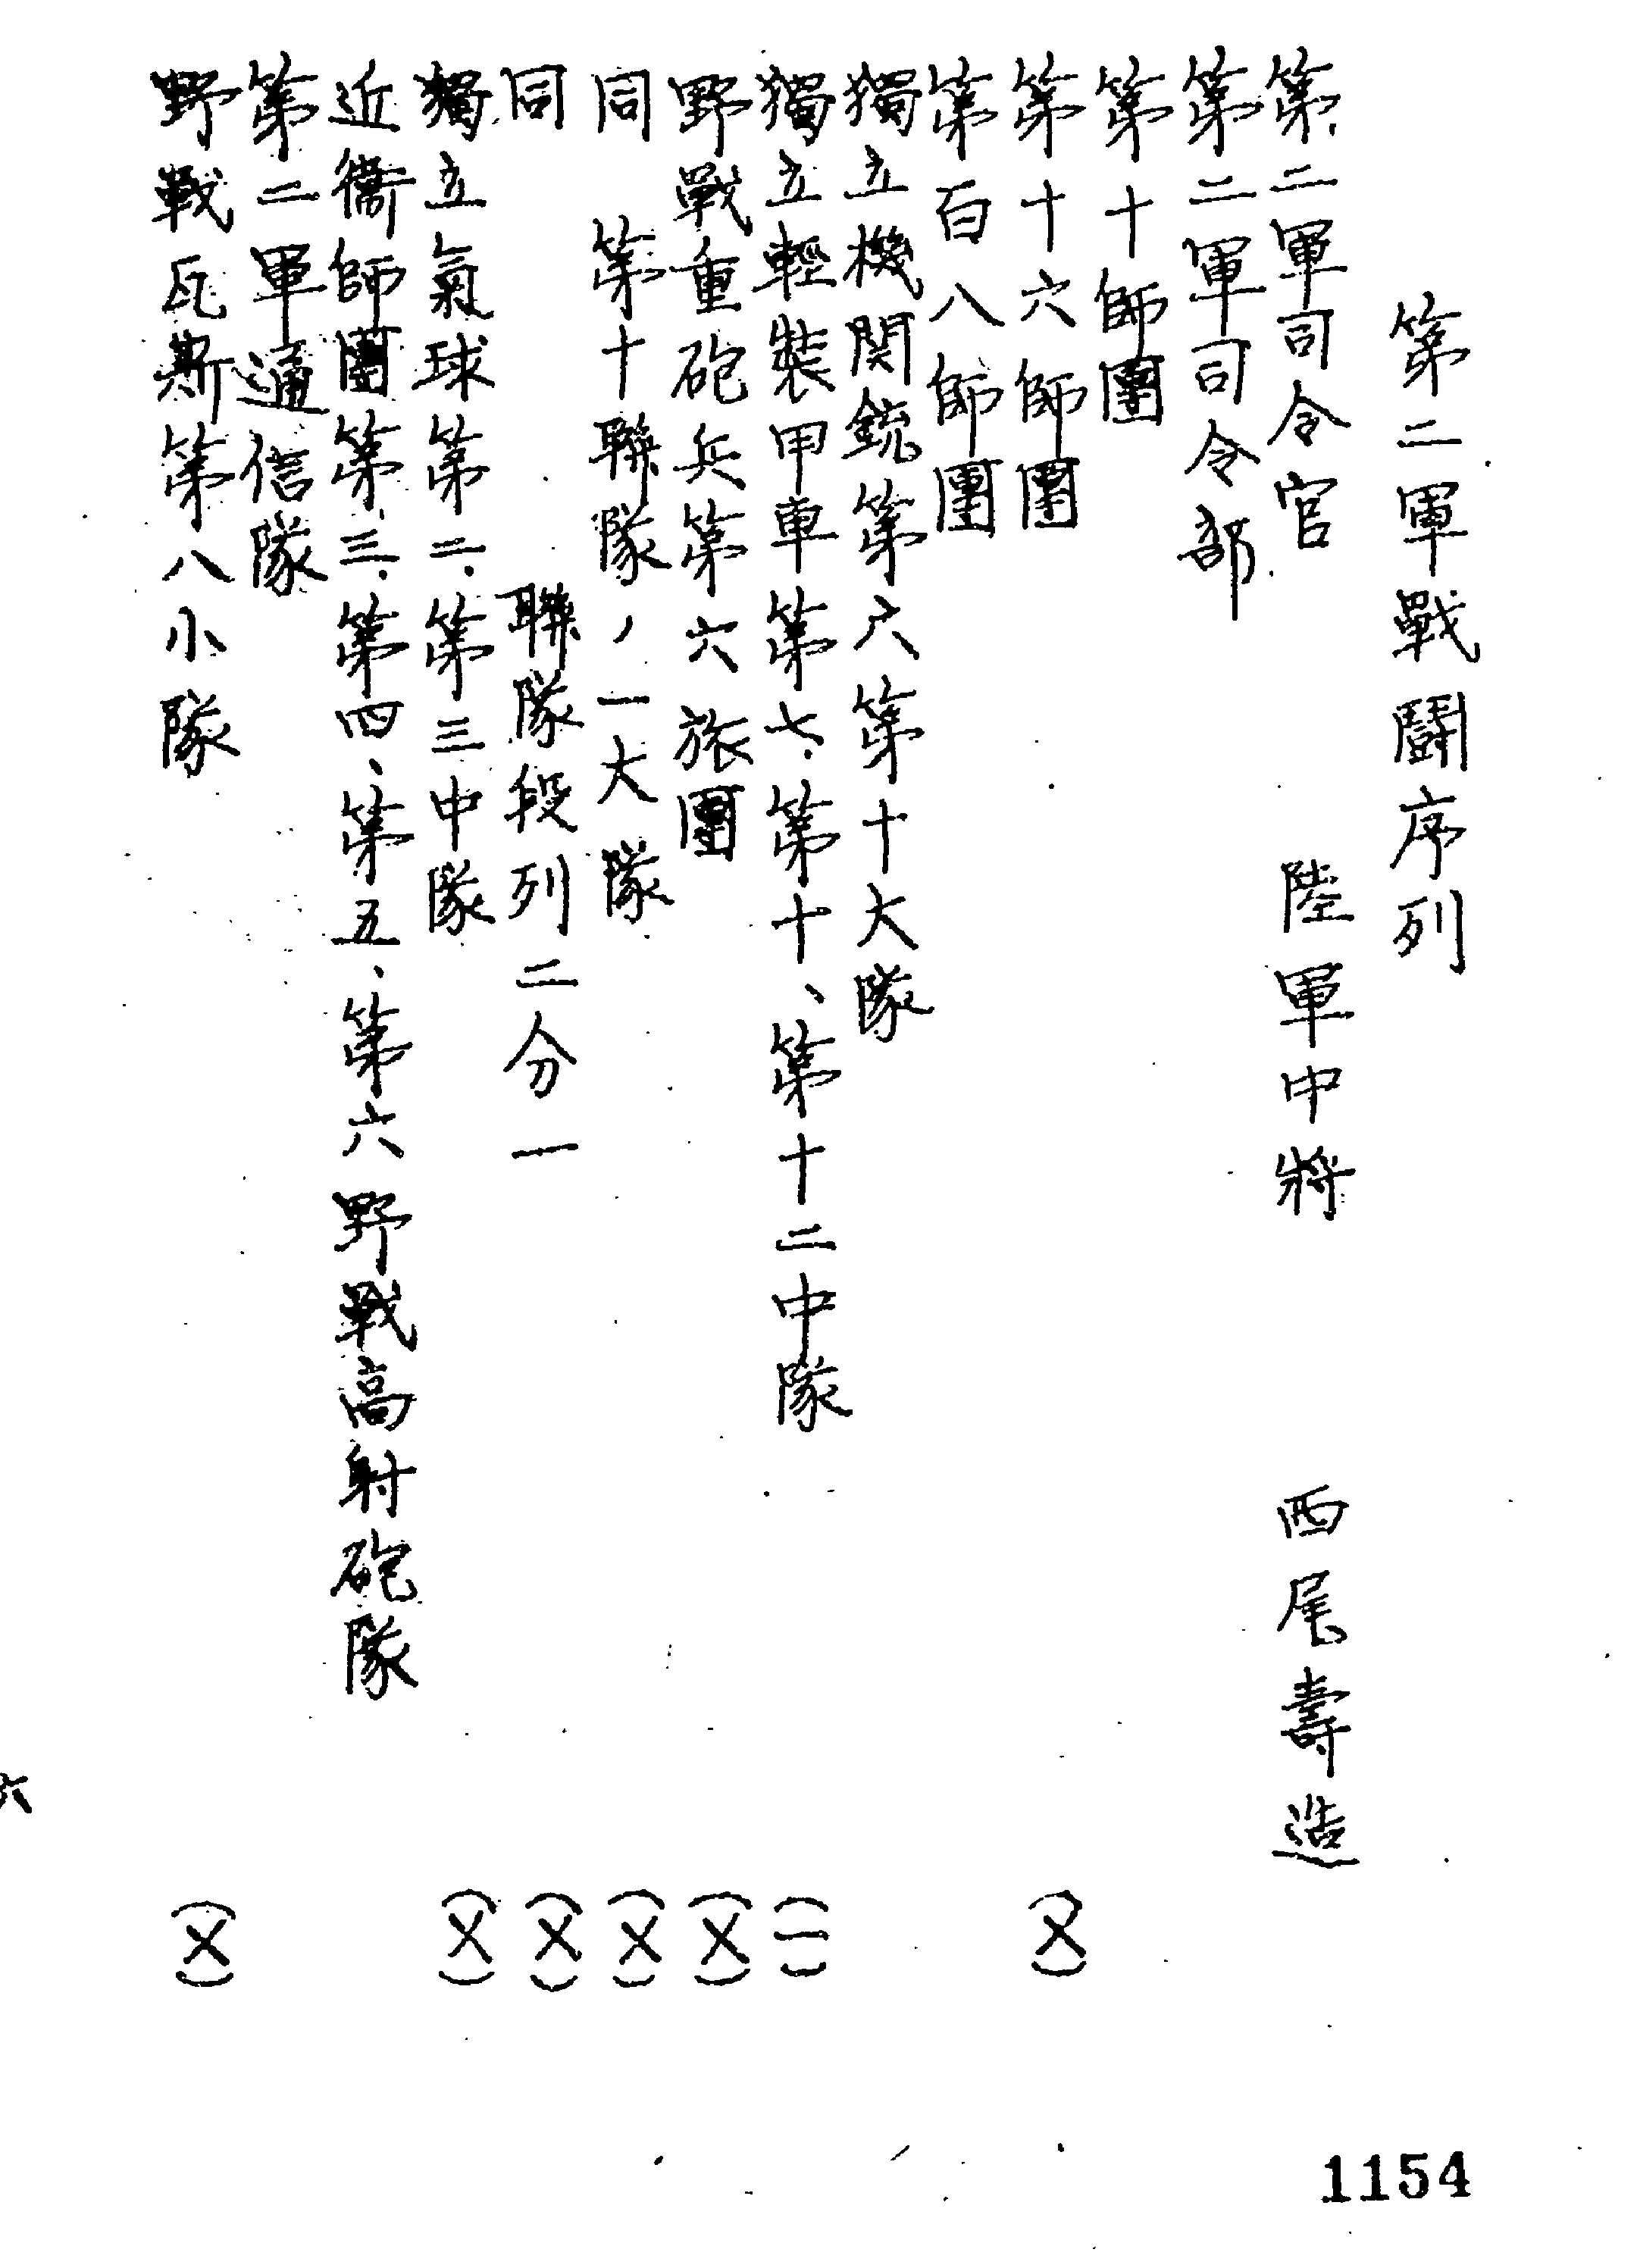 第二軍戰鬪序列
第二軍司令官 陸軍中將 西尾壽造
第二軍司令部
第十師團
第十六師團 (×)
第百八師團
獨立機関銃第六第十大隊
獨立輕裝甲車第七、第十、第十二中隊 (一)
野戰重砲兵第六旅團 (×)
同 第十聯隊ノ一大隊 (×)
同 聯隊段列二分一 (×)
獨立氣球第二、第三中隊 (×)
近衞師團第三、第四、第五、第六野戰高射砲隊
第二軍通信隊
野戰瓦斯第八小隊 (×)
六
1154